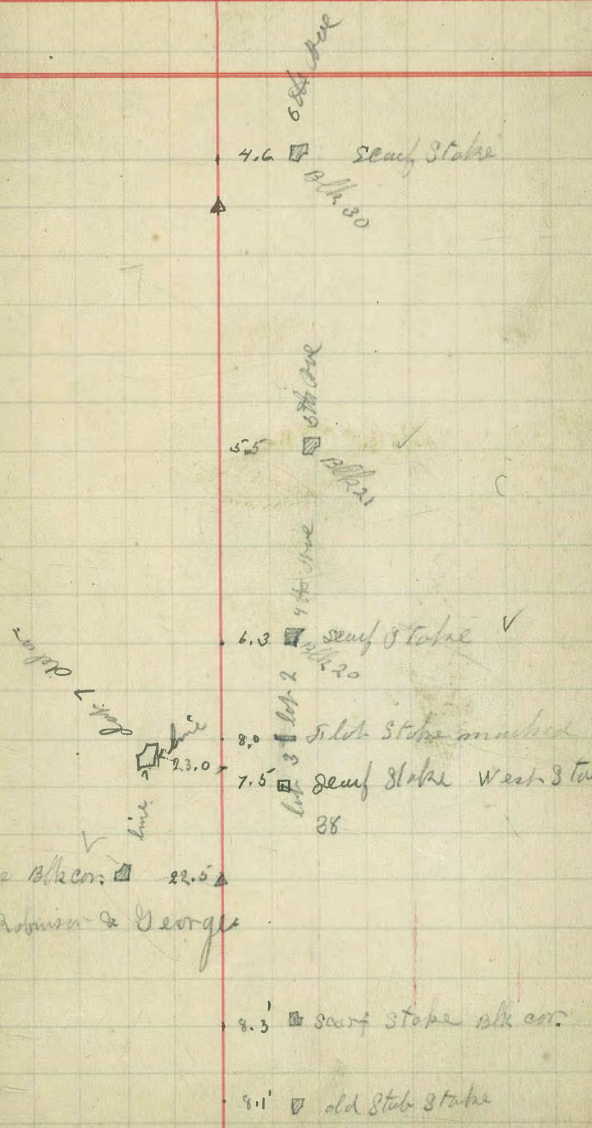 6th Ave
4.6 Scarf Stake
Blk 30
5th Ave
5.5
Blk 21
4th Ave
6.3 Scarf Stake
Blk 20
lot 2
8.0 lot Stake marked
line
23.0
lot 3
7.5 Scarf Stake West Sta
38
line
Blk cor. 22.5
Robinson & George
8.3' Scarf Stake Blk cor.
8.1' old Stub Stake